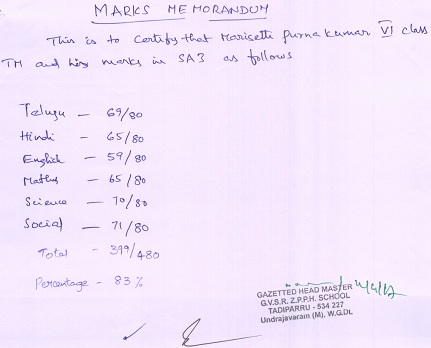 MARKS MEMORANDUM
This is to certify that Marisetti purna kumar VI class
TM and his marks in SA3 as follows
Telugu - 69/80
Hindi - 65/80
English - 59/80
Maths - 65/80
Science - 70/80
Social - 71/80
Total - 399/480
Percentage - 83%
GAZETTED HEAD MASTER
G.V.S.R. Z.P.P.H. SCHOOL
TADIPARRU - 534 227
Undrajavaram (M), W.G.DL